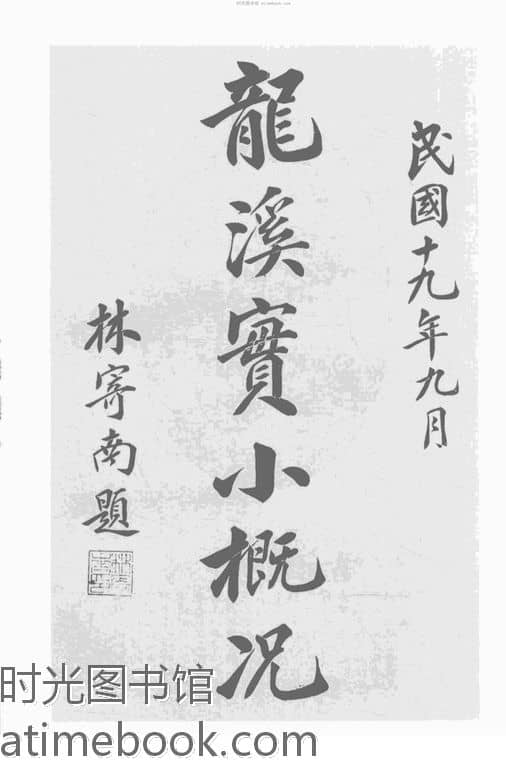 民國十九年九月
龍溪實小概况
林寄南題
时光图书馆
atimebook.com